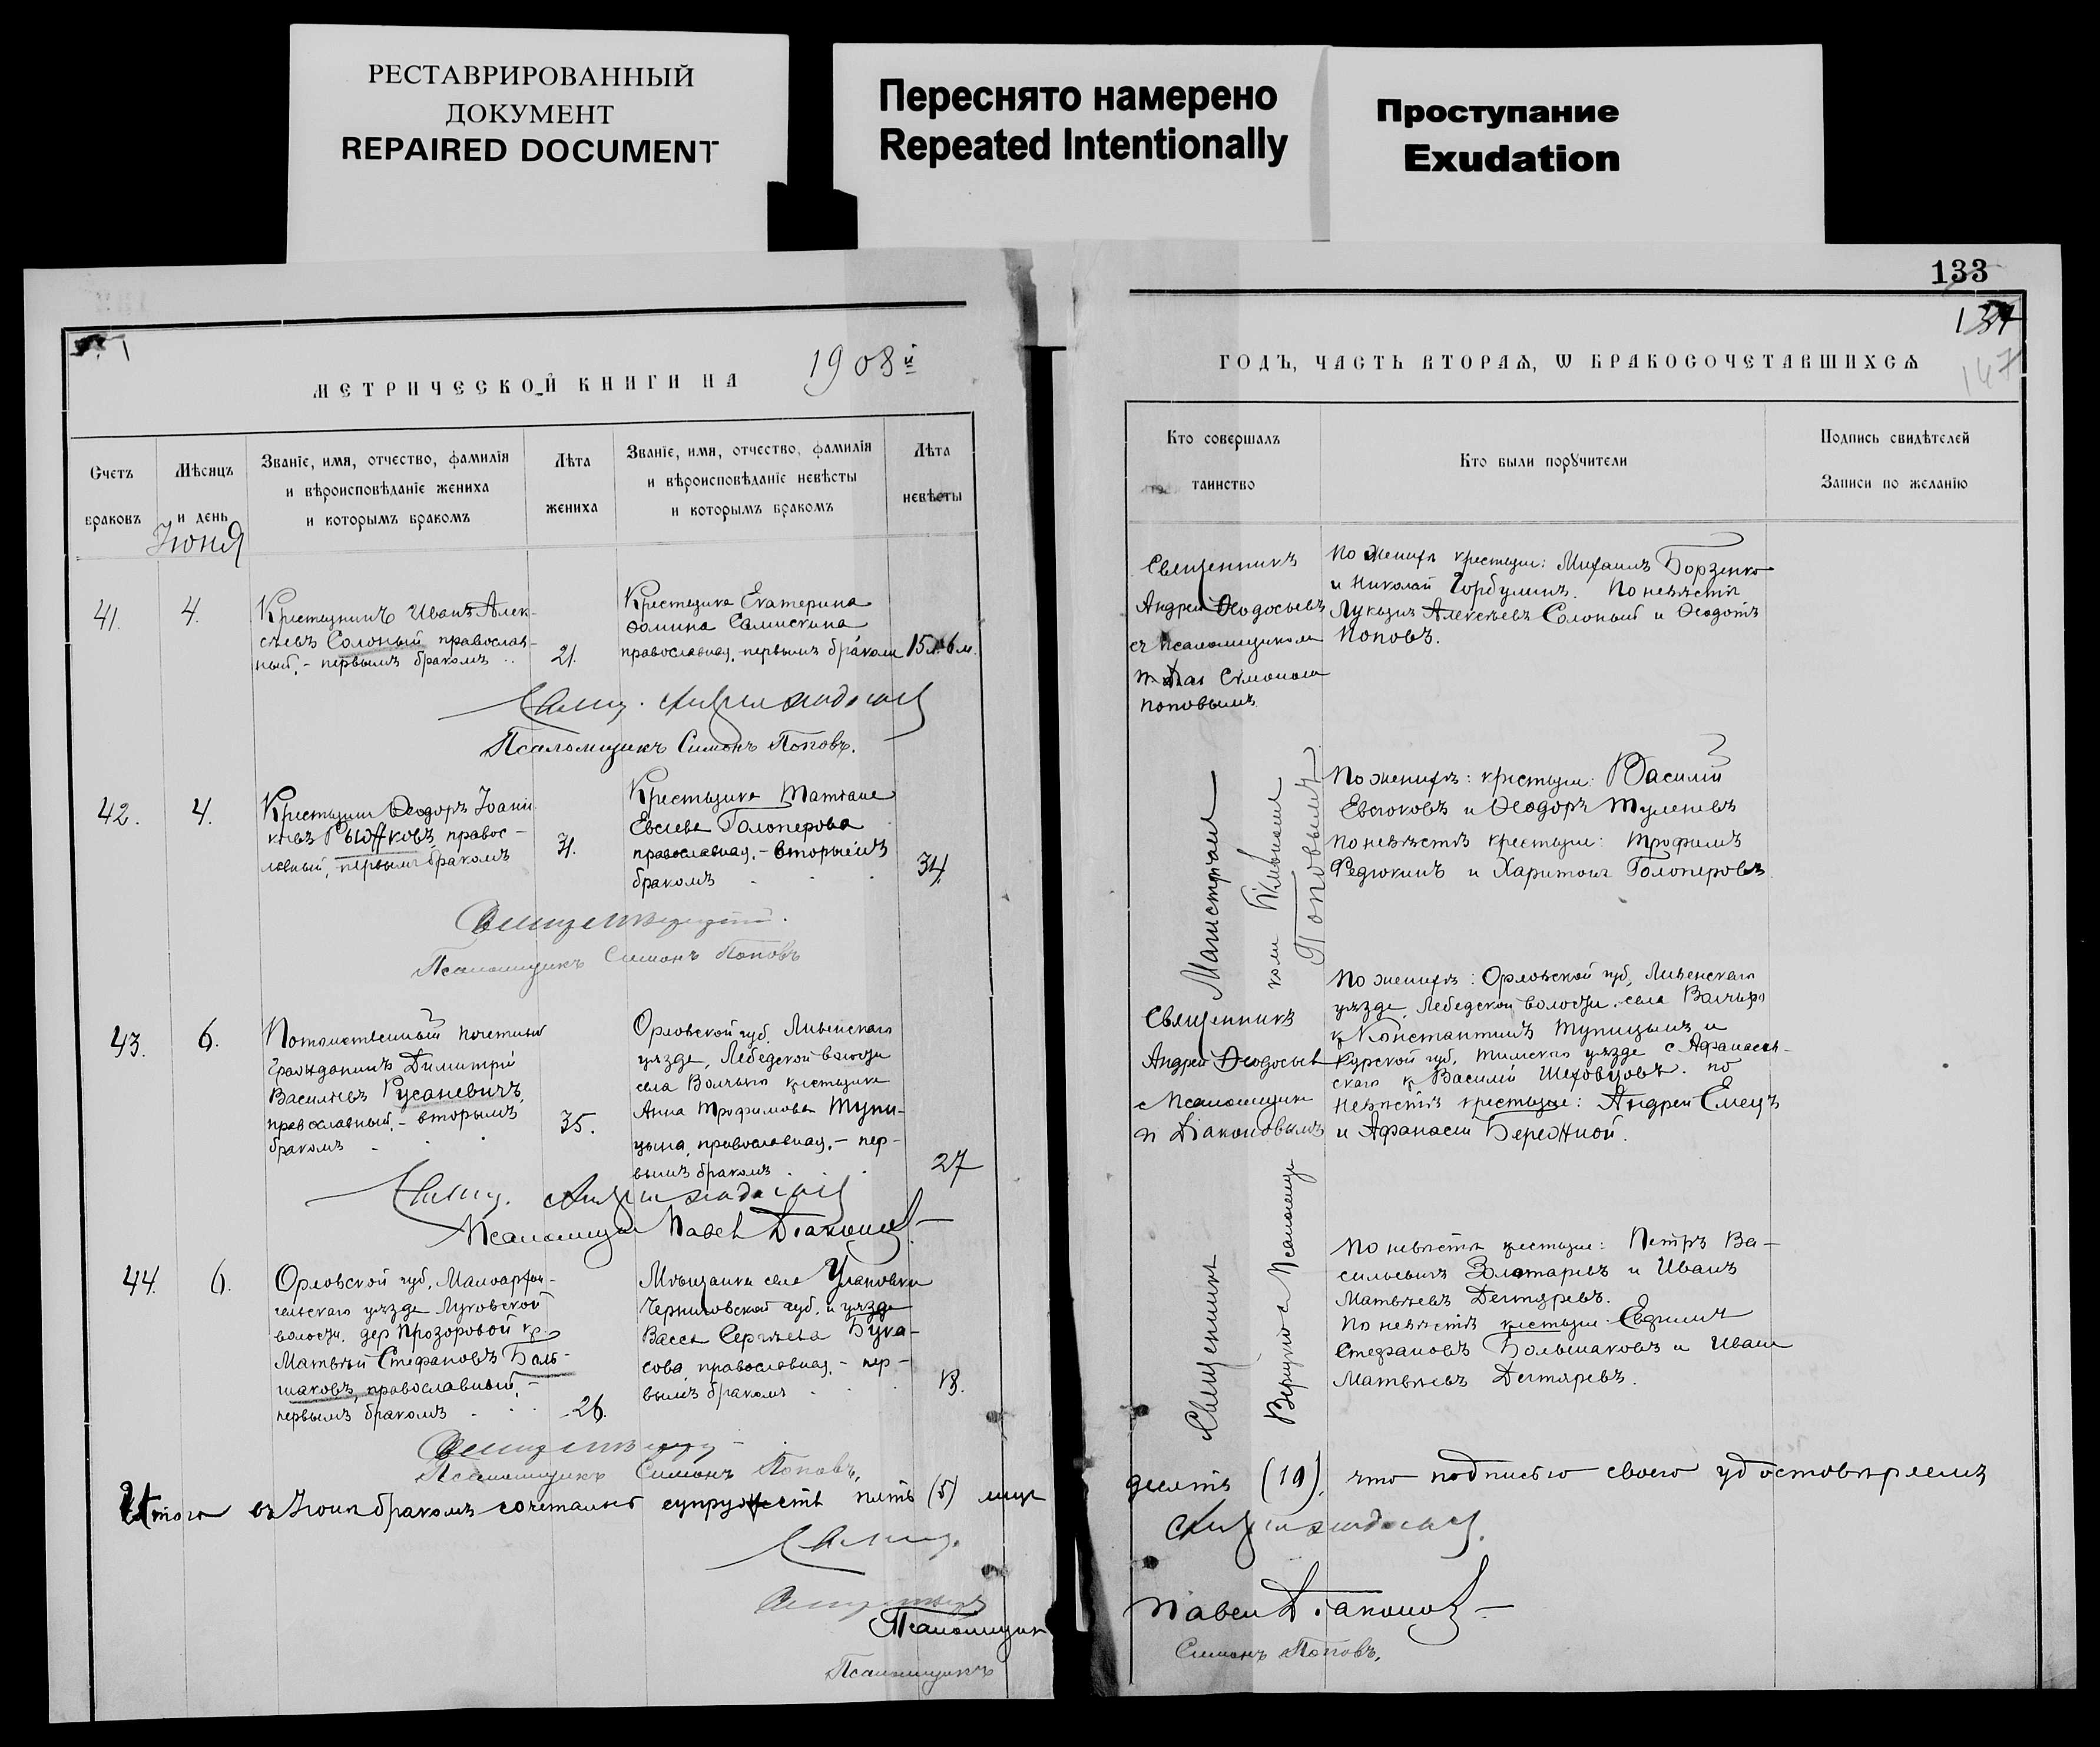 РЕСТАВРИРОВАННЫЙ
ДОКУМЕНТ
REPAIRED DOCUMENT
Переснято намерено
Repeated Intentionally
Проступание
Exudation
МЕТРИЧЕСКОЙ КНИГИ НА 1908й
Счетъ браковъ
Мѣсяцъ и день
Званіе, имя, отчество, фамилія
и вѣроисповѣданіе жениха
и которымъ бракомъ
Лѣта жениха
Званіе, имя, отчество, фамилія
и вѣроисповѣданіе невѣсты
и которымъ бракомъ
Лѣта невѣсты
Іюня
41.
4.
Крестьянинъ Иванъ Алек-
сѣевъ Солоный православ-
ный, - первымъ бракомъ
21.
Крестьянка Екатерина
Ѳомина
православная, первымъ бракомъ
15 л. 6 м.
Свящ. Андрей Ѳеодосьевъ
Псаломщикъ Симонъ Поповъ.
42.
4.
Крестьянинъ Ѳеодоръ Іоанни-
кіевъ Рыжковъ, правос-
лавный, первымъ бракомъ
31.
Крестьянка Татіана
Евсеева Голоперова
православная, - вторымъ
бракомъ
34.
Священникъ
Псаломщикъ Симонъ Поповъ
43.
6.
Потомственный почетный
гражданинъ Димитрій
Васильевъ Русаневичъ,
православный, - вторымъ
бракомъ
35.
Орловской губ. Ливенскаго
уѣзда, Лебедской волости
села крестьянка
Анна Трофимова Тупи-
цына, православная, - пер-
вымъ бракомъ
27
Свящ. Андрей Ѳеодосьевъ
Псаломщикъ Павелъ Діаконовъ
44.
6.
Орловской губ. Малоархан-
гельскаго уѣзда Луковской
волости, дер. Прозоровой кр.
Матвѣй Стефановъ Боль-
шаковъ, православный, -
первымъ бракомъ
26.
Мѣщанка села Улановки
Черниговской губ. и уѣзда
Васса Сергѣева
православная, - пер-
вымъ бракомъ
18.
Псаломщикъ Симонъ Поповъ.
Итого въ Іюнѣ бракомъ сочетались супружествъ пять (5) лицъ
Свящ.
Священникъ
Псаломщикъ
Псаломщикъ
133
147
ГОДЪ, ЧАСТЬ ВТОРАЯ, Ѡ БРАКОСОЧЕТАВШИХСЯ
Кто совершалъ таинство
Кто были поручители
Подпись свидѣтелей
Записи по желанію
Священникъ
Андрей Ѳеодосьевъ
съ псаломщикомъ
Симономъ
Поповымъ
По женихѣ крестьяне: Михаилъ Борзенко
и Николай Горбулинъ. По невѣстѣ
Лукьянъ Алексѣевъ Солоный и Ѳеодотъ
Поповъ.
Поповымъ
По женихѣ: крестьяне: Василій
Евсюковъ и Ѳеодоръ Туленевъ
по невѣстѣ крестьяне: Трофимъ
Федюкинъ и Харитонъ Голоперовъ
Священникъ
Андрей Ѳеодосьевъ
съ псаломщико
мъ Діаконовымъ
По женихѣ: Орловской губ., Ливенскаго
уѣзда, Лебедской волости, села
кр Константинъ Тупицынъ и
Курской губ, Тимскаго уѣзда с Афанасьев-
скаго кр Василій Шеховцовъ. по
невѣстѣ крестьяне: Андрей Емецъ
и Афанасій Бережной.
Священникъ
съ Псаломщи
По невѣстѣ крестьяне: Петръ Ва-
сильевичъ Золотаревъ и Иванъ
Матвѣевъ Дегтяревъ.
По невѣстѣ крестьяне:
Стефановъ Большаковъ и Иванъ
Матвѣевъ Дегтяревъ.
десять (10), что подписью своею удостовѣряемъ
Андрей Ѳеодосьевъ.
Павелъ Діаконовъ
Симонъ Поповъ.